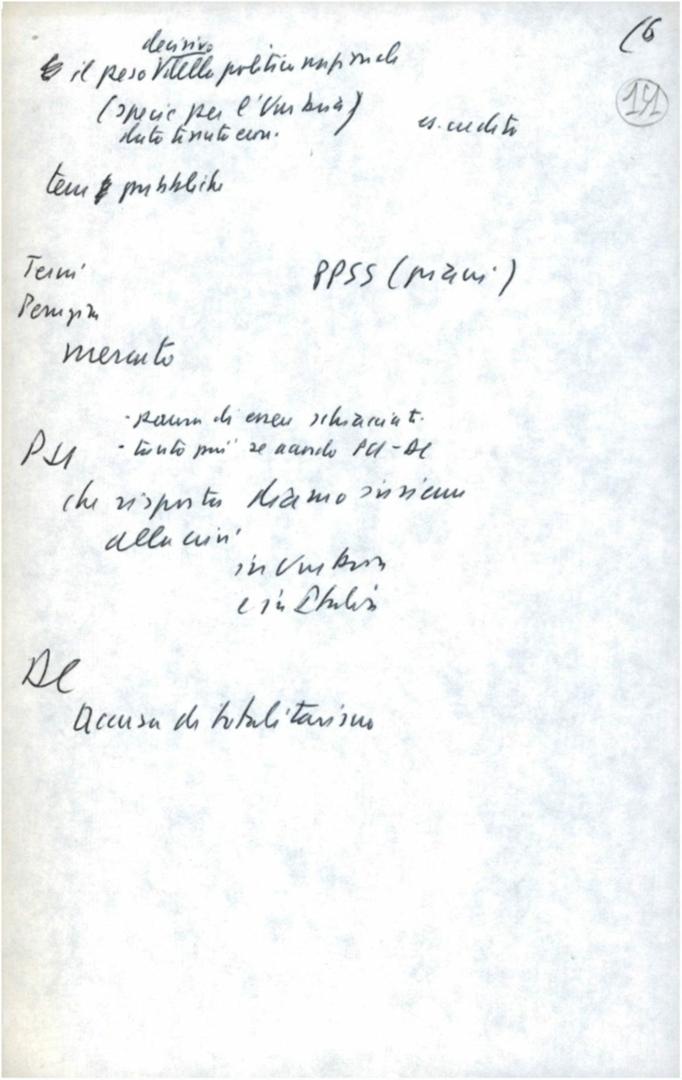 (6
151
decisivo
il peso della politica nazionale
(specie per l'Umbria)
dato tessuto econ.
es. credito
temi pubblich
Terni
PPSS (piani)
Perugia
mercato
- paura di essere schiacciati.
PSI
- tanto più se accordo PCI-DC
che risposta diamo insieme
alla crisi
in Umbria
e in Italia
DC
accusa di totalitarismo